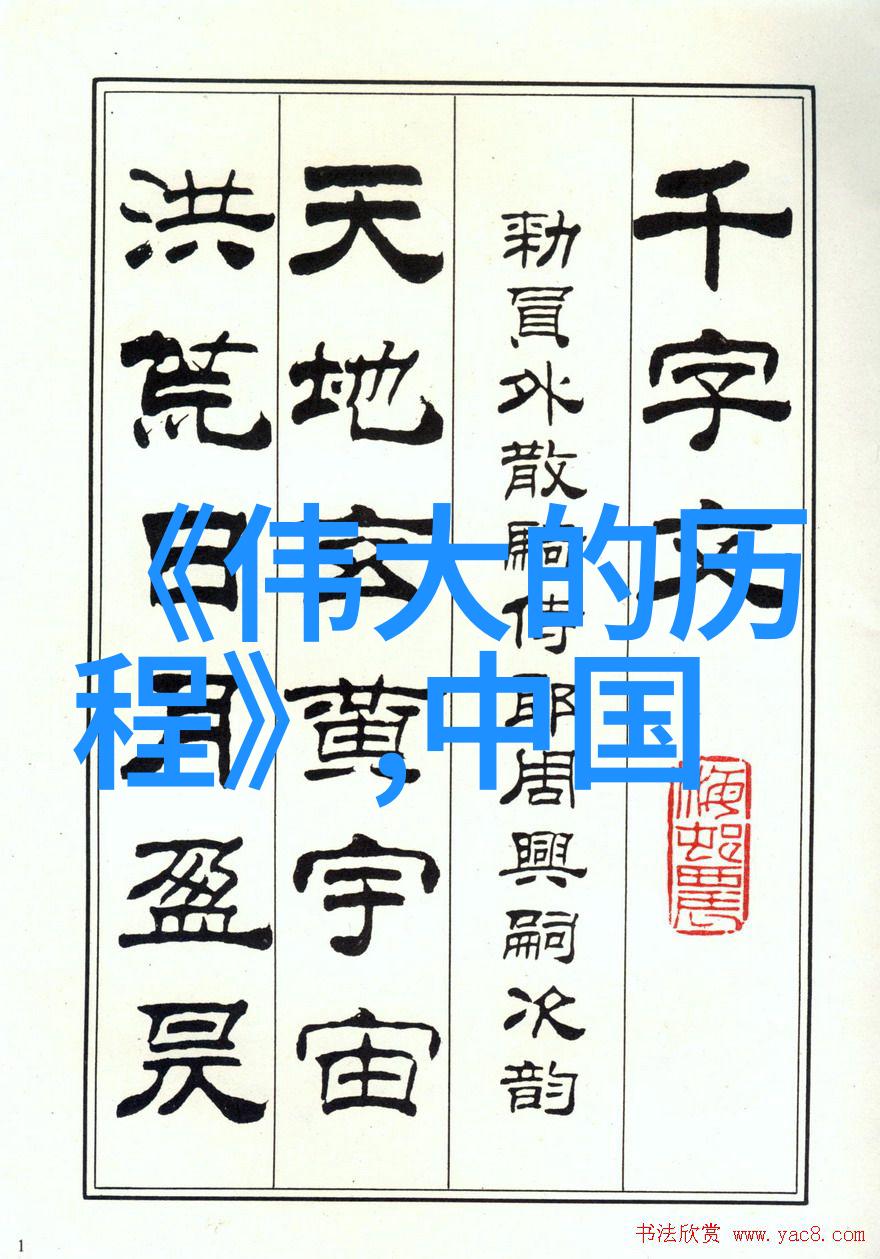 千字文
勅員外散騎侍郎周興嗣次韵
天地玄黃宇宙
洪荒日月盈昃
《伟大的历
程》,中国
1
书法欣赏 www.yac8.com